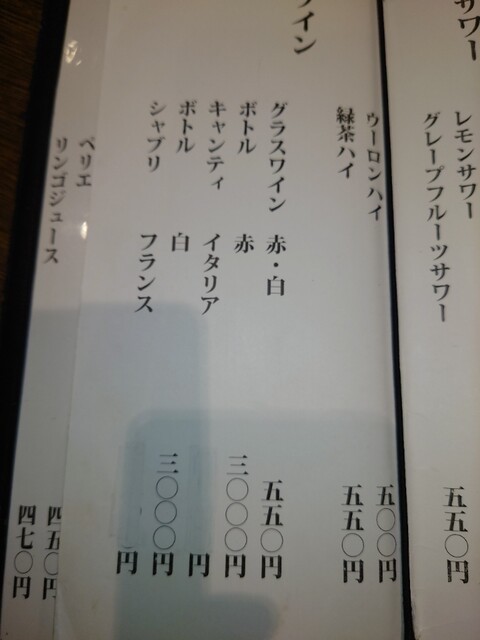 サワー
レモンサワー 五五〇円
グレープフルーツサワー
ウーロンハイ 五〇〇円
緑茶ハイ 五五〇円
ワイン
グラスワイン 赤・白 五五〇円
ボトル 赤 三〇〇〇円
キャンティ イタリア 円
ボトル 白 三〇〇〇円
シャブリ フランス 円
ペリエ 四五〇円
リンゴジュース 四七〇円